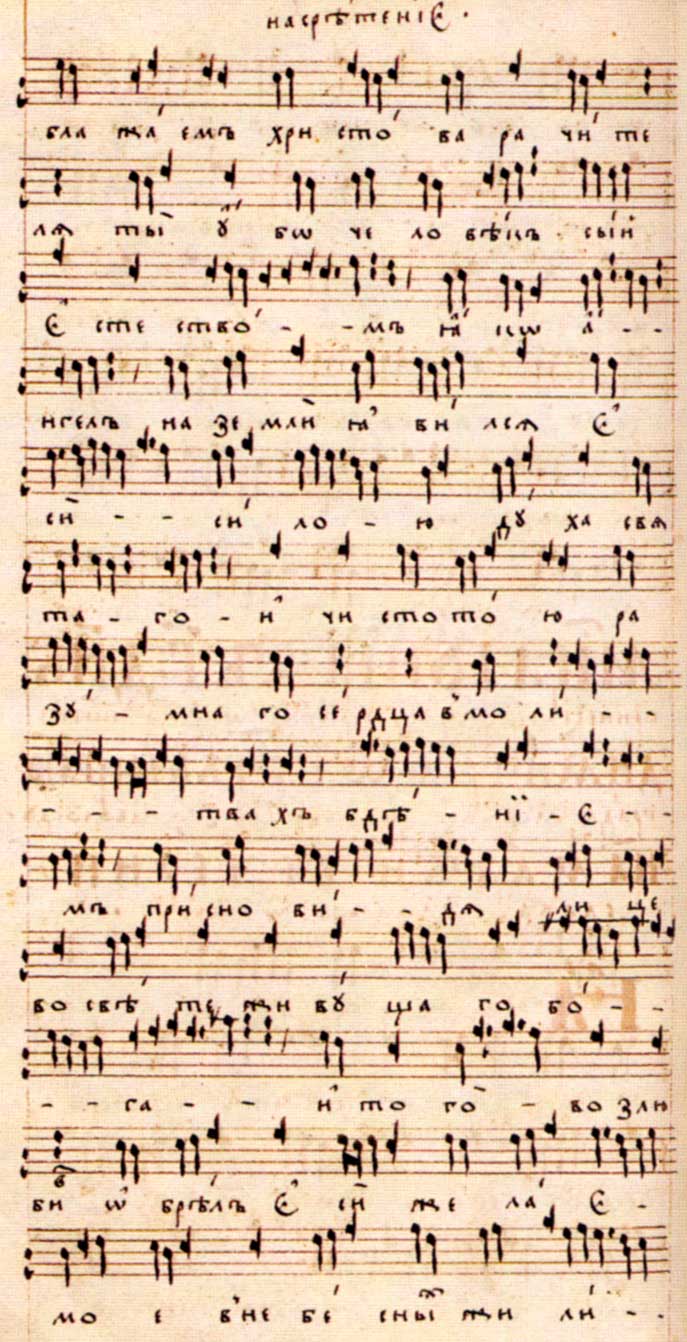 на срѣтенїє ·
бла жа емъ хри сто ва ра чи те
лѧ ты ꙋ бѡ че ло вѣкъ сый
Є сте ство - - мъ ꙗ кѡ а - -
нгелъ на зе мли ꙗ ви лсѧ Є
сй - - си ло - ю дꙋ ха свѧ
та - го - и чи сто то ю ра
зꙋ - мна го се рдца в мо ли - -
- - - тва хъ бдѣ - нї - є - -
мъ при сно ви - - дѧ ли це
во свѣ те жи вꙋ ща го бо - -
- - га - - и то го - во злю
би ѡ брѣлъ Є сй же ла Є -
мо е в не бе сны жи ли - -